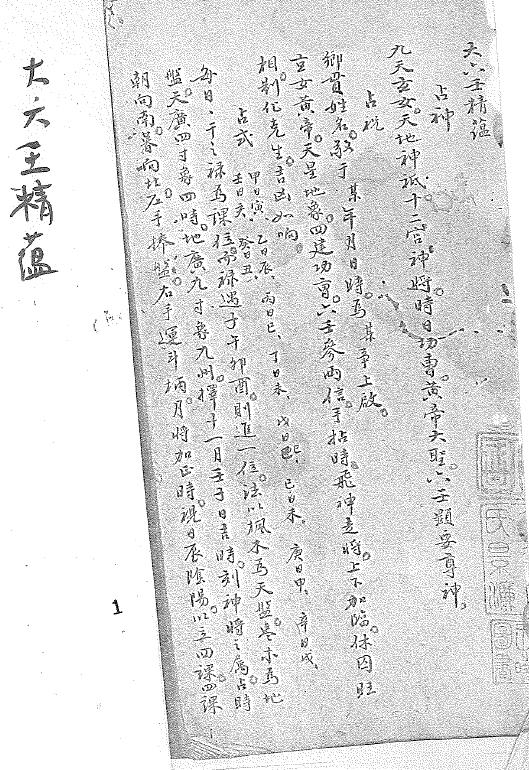 大六壬精蘊
占神
九天玄女。天地神祇。十二宮神。將時日功曹。黃帝大聖。六壬顯要尊神。
占祝
鄉貫姓名。敬于某年月日時。爲某事上啟。
玄女黃帝。天星地象。四建功曹。六壬參兩。信手拈時。飛神走將。上下加臨。休囚旺
相。制化克生。吉凶如响。
占式
甲日寅、乙日辰、丙日巳、丁日未、戊日巳、己日未、庚日申、辛日戌、
壬日亥、癸日丑、
每日干之禄爲課位。禄遇子午卯酉。則進一位。法以楓木爲天盤。棗木爲地
盤。天廣四寸象四時。地廣九寸象九州。擇十一月壬子日吉時。刻神將之。占時
朝向南。暮响北。左手捧盤。右手運斗柄。月將加正時。視日辰陰陽。以立四課。四課
大六壬精蕴
1